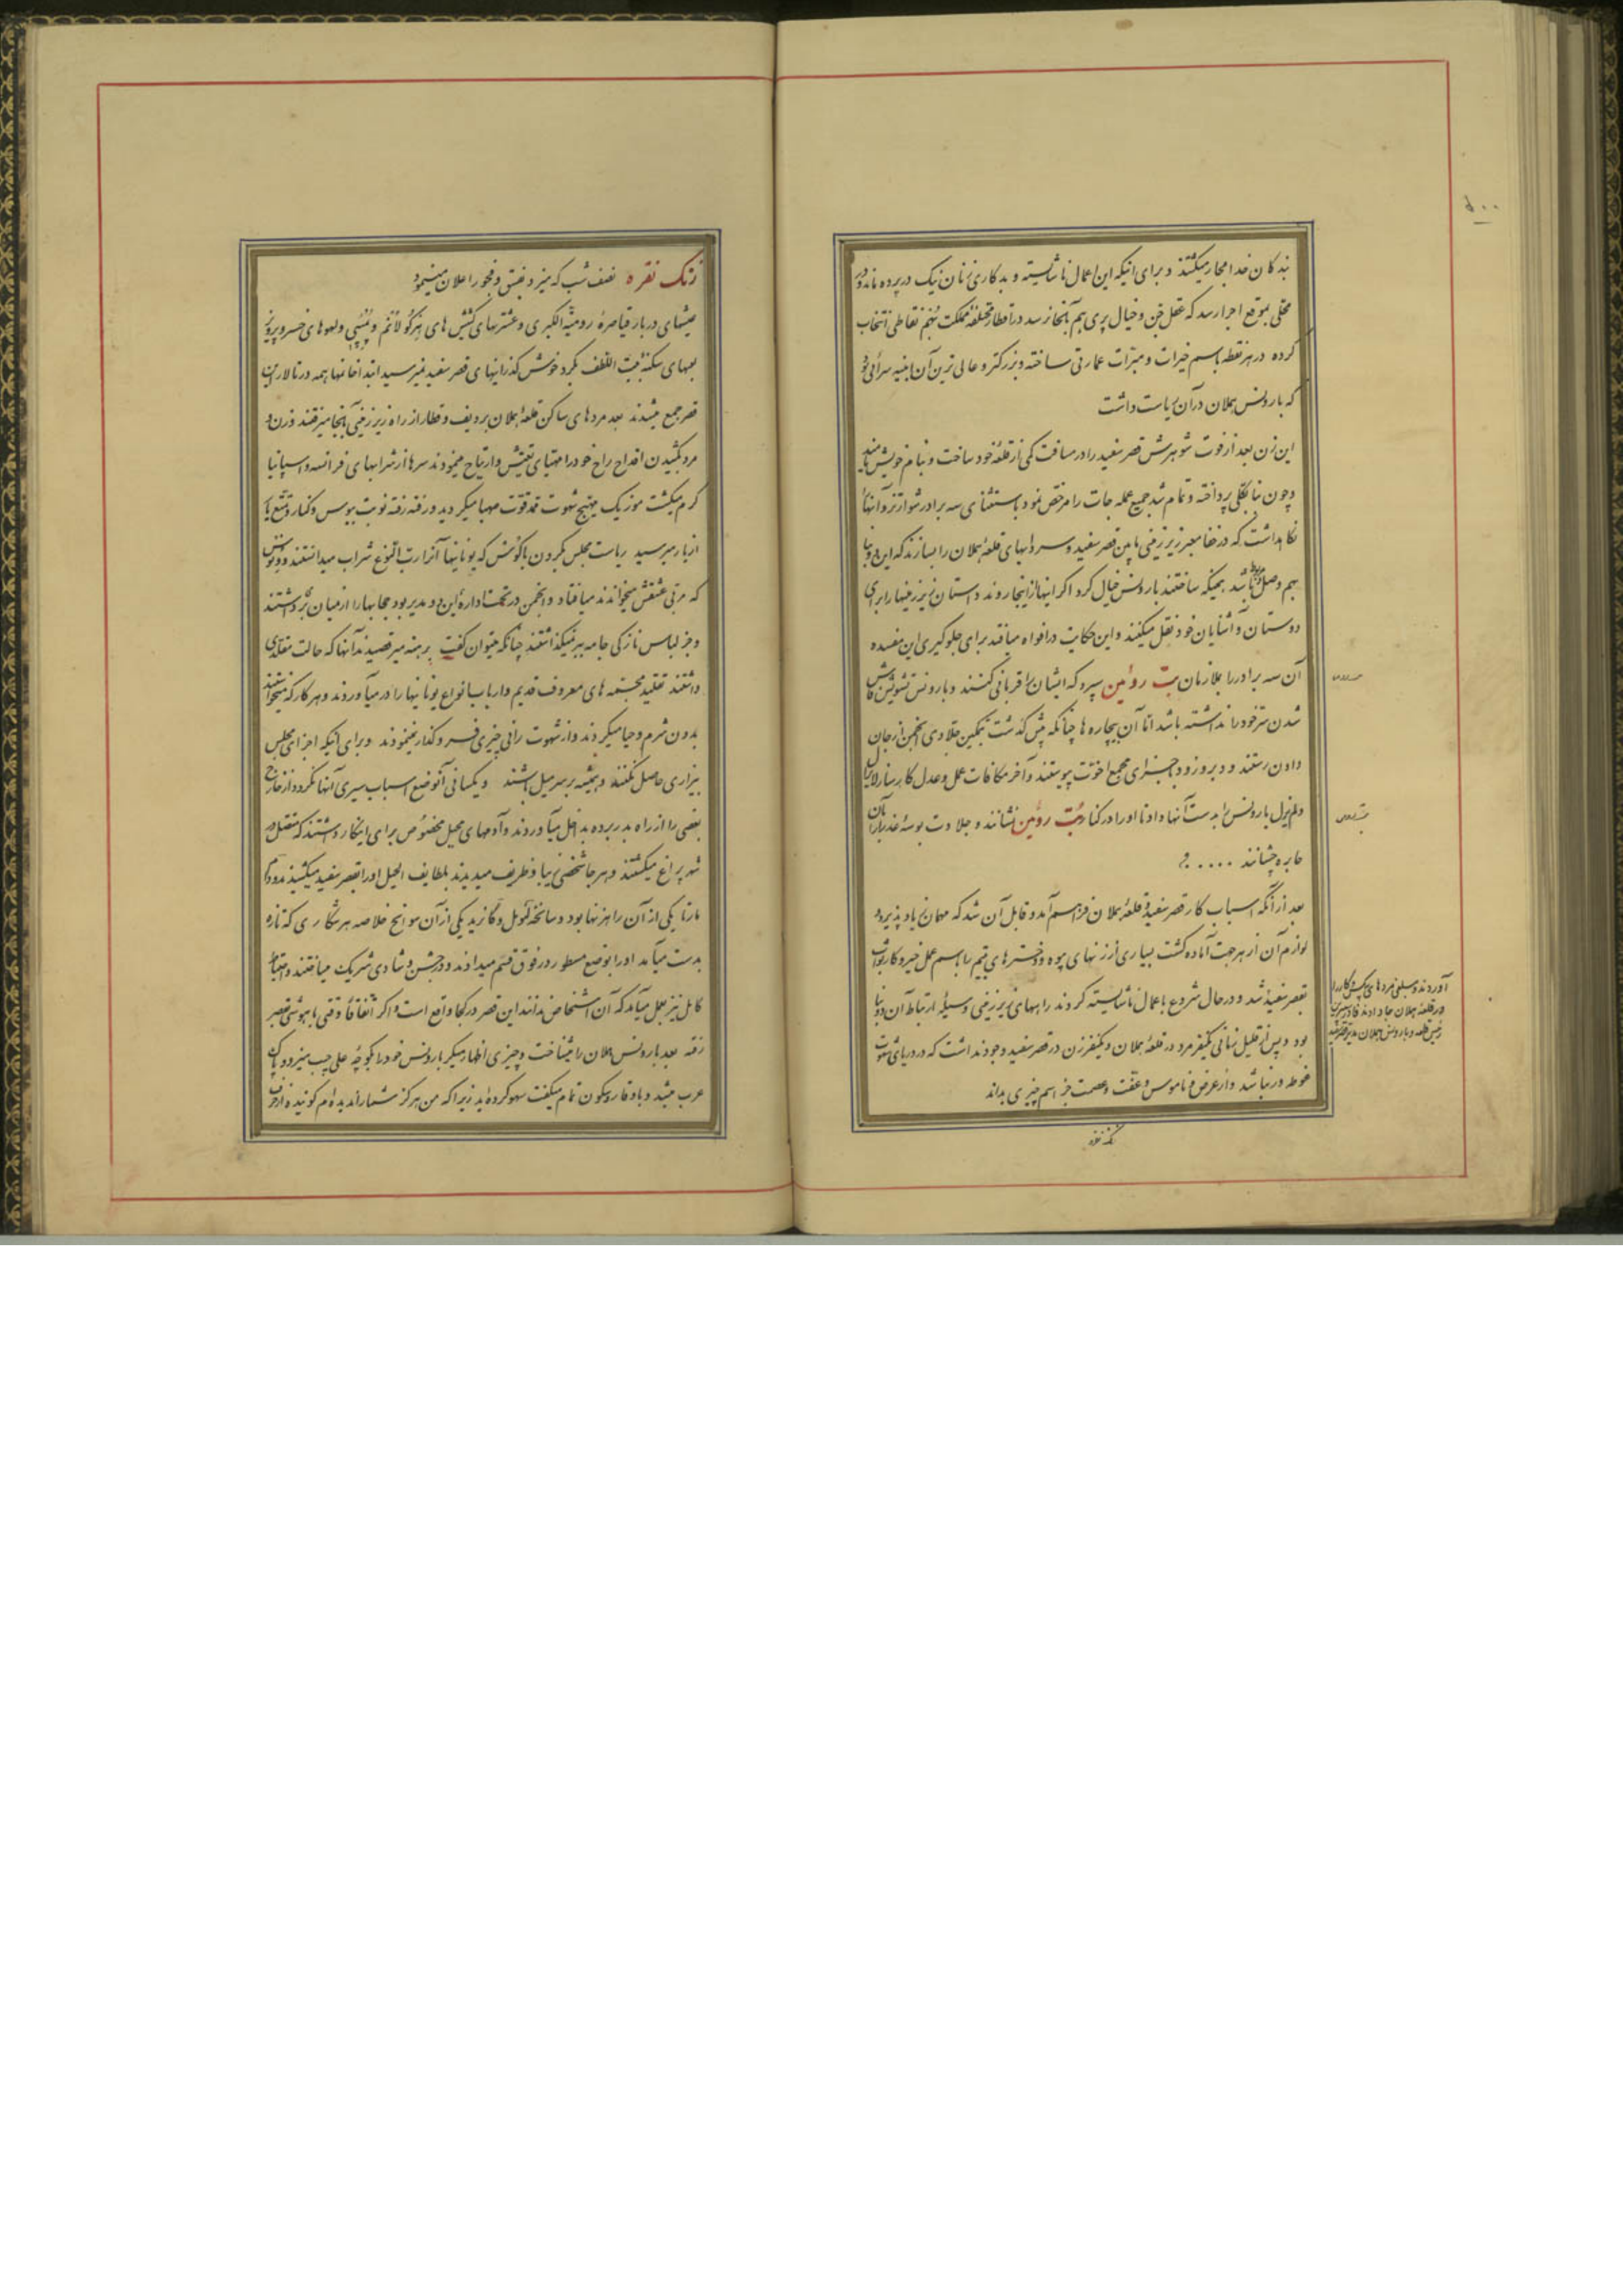 ۵۰۰
بندکان خدا مجار میکشتند و برای اینکه این اعمال ناشایسته و بدکاری زنان نیک در پرده ماند و در
محلی بموقع اجرا رسد که عقل جن و خیال پری هم بآنجا نرسد در اقطار مختلفه مملکت نقاطی انتخاب
کرده در هر نقطه باسم خیرات و مبرات عمارتی ساخته و بزرکتر و عالی ترین آن ابنیه سرائی بود
که بارونس هملان در آن ریاست داشت
این زن بعد از فوت شوهرش قصر سفید را در مسافت کمی از قلعه خود ساخت و بنام خویش نامید
و چون بنا بکلی پرداخته و تمام شد جمیع عمله جات را مرخص نمود باستثنای سه برادر شوارتز و آنها را
نکاهداشت که در خفا معبر زیر زمینی مابین قصر سفید و سردابهای قلعه هملان را بسازند که این دو بنا
بهم وصل باشد همینکه ساختند بارونس خیال کرد اکر اینها از اینجا روند داستان زیر زمینها را برای
دوستان و آشنایان خود نقل میکنند و این حکایت در افواه میافتد برای جلوکیری این مفسده
آن سه برادر را بملازمان بت روئین سپرد که ایشان را قربانی کنند و بارونس تشویش فاش
شدن سر خود را نداشته باشد اما آن بیچاره ها چنانکه پیش کذشت بتمکین جلادی انجمن از جان
دادن رستند و دیر و زود جزای مجمع اخوت پیوستند و آخر مکافات عمل و عدل کارساز لایزال
و لم یزل بارونس را بدست آنها داد تا او را در کنار بت روئین نشانند و حلاوت بوسه عذرا را بآن
جابره چشانند .....
بعد از آنکه اسباب کار قصر سفید و قلعه هملان فراهم آمد و قابل آن شد که مهمان یا پذیرد و
لوازم آن از هر جهت آماده کشت بسیاری از زنهای بیوه و دخترهای یتیم را باسم عمل خیر و کار ثواب
آوردند و مبلغی مردهای بیکس و کار را
در قلعه هملان جا دادند
رئیس قلعه و بارونس هملان مدیر قصر شد
بقصر سفید شد و در حال شروع باعمال ناشایسته کردند راههای زیر زمینی وسیله ارتباط آن دو بنا
بود و پس از قلیل زمانی یکنفر مرد در قلعه هملان و یکنفر زن در قصر سفید وجود نداشت که در دریای شهوت
غوطه ور نباشد و از عرض و ناموس و عفت و عصمت جز اسم چیزی بداند
زنک نقره
زنک نقره نصف شب که میزد بفسق و فجور اعلان مینمود
عیشهای دربار قیاصره رومیة الکبری و عشرتهای کشیش های هرکولانم و پمپئی و لهوهای خسرو پرویز
بعهای سکنه بیت اللطف بکرد خوش کذرانیهای قصر سفید نمیرسید ابتدا خانمها همه در تالار این
قصر جمع میشدند بعد مردهای ساکن قلعه هملان بردیف و قطار از راه زیر زمینی بآنجا میرفتند و زن و
مرد بکشیدن اقداح راح خود را مهیای تعیش و ارتیاح مینمودند سرها از شرابهای فرانسه و اسپانیا
کرم میکشت موزیک مهیج شهوت ممد قوت مهیا میکردید و رفته رفته نوبت ببوس و کنار و تمتع یار
از یار میرسید ریاست مجلس بکردن باکوس که یونانیها آنرا رب النوع شراب میدانستند و ونوس
که مربی عشقش میخواندند میافتاد و انجمن در تحت اداره این دو مدیر بود حجابها را از میان برداشتند
و جز لباس نازکی جامه ببر نمیکذاشتند چنانکه میتوان کفت برهنه میرقصیدند آنها که حالت مقلدی
داشتند تقلید مجسمه های معروف قدیم و ارباب انواع یونانیها را در میآوردند و هر کار که میخواستند
بدون شرم و حیا میکردند و از شهوت رانی چیزی فروکذار نمینمودند و برای آنکه اجزای مجلس
بیزاری حاصل نکنند و همیشه بر سر میل باشند و یکسانی آنوضع اسباب سیری آنها نکردد از خارج
بعضی را از راه بدر برده بداخل میآوردند و آدمهای محیل مخصوص برای اینکار داشتند که متصل در
شهر سراغ میکشتند و هر جا شخص زیبا و ظریف میدیدند بلطایف الحیل او را بقصر سفید میکشیدند و دام
مارتا یکی از آن راهزنها بود و سانحه لئوپل و کازید یکی از آن سوانح خلاصه هر شکاری که تازه
بدست میآمد او را بوضع مسطور در فوق قسم میدادند و در جشن و شادی شریک میساختند و احتیاط
کامل نیز بعمل میآمد که آن اشخاص ندانند این قصر در کجا واقع است و اکر اتفاقا وقتی بابیهوشی بقصر
رفته بعد بارونس هملان را میشناخت و چیزی اظهار میکرد بارونس خود را بکوچه علی چپ میزد و پاک
عرب میشد و باوقار و سکون تمام میکفت سهو کرده اید زیرا که من هرکز شما را ندیده ام کوئید